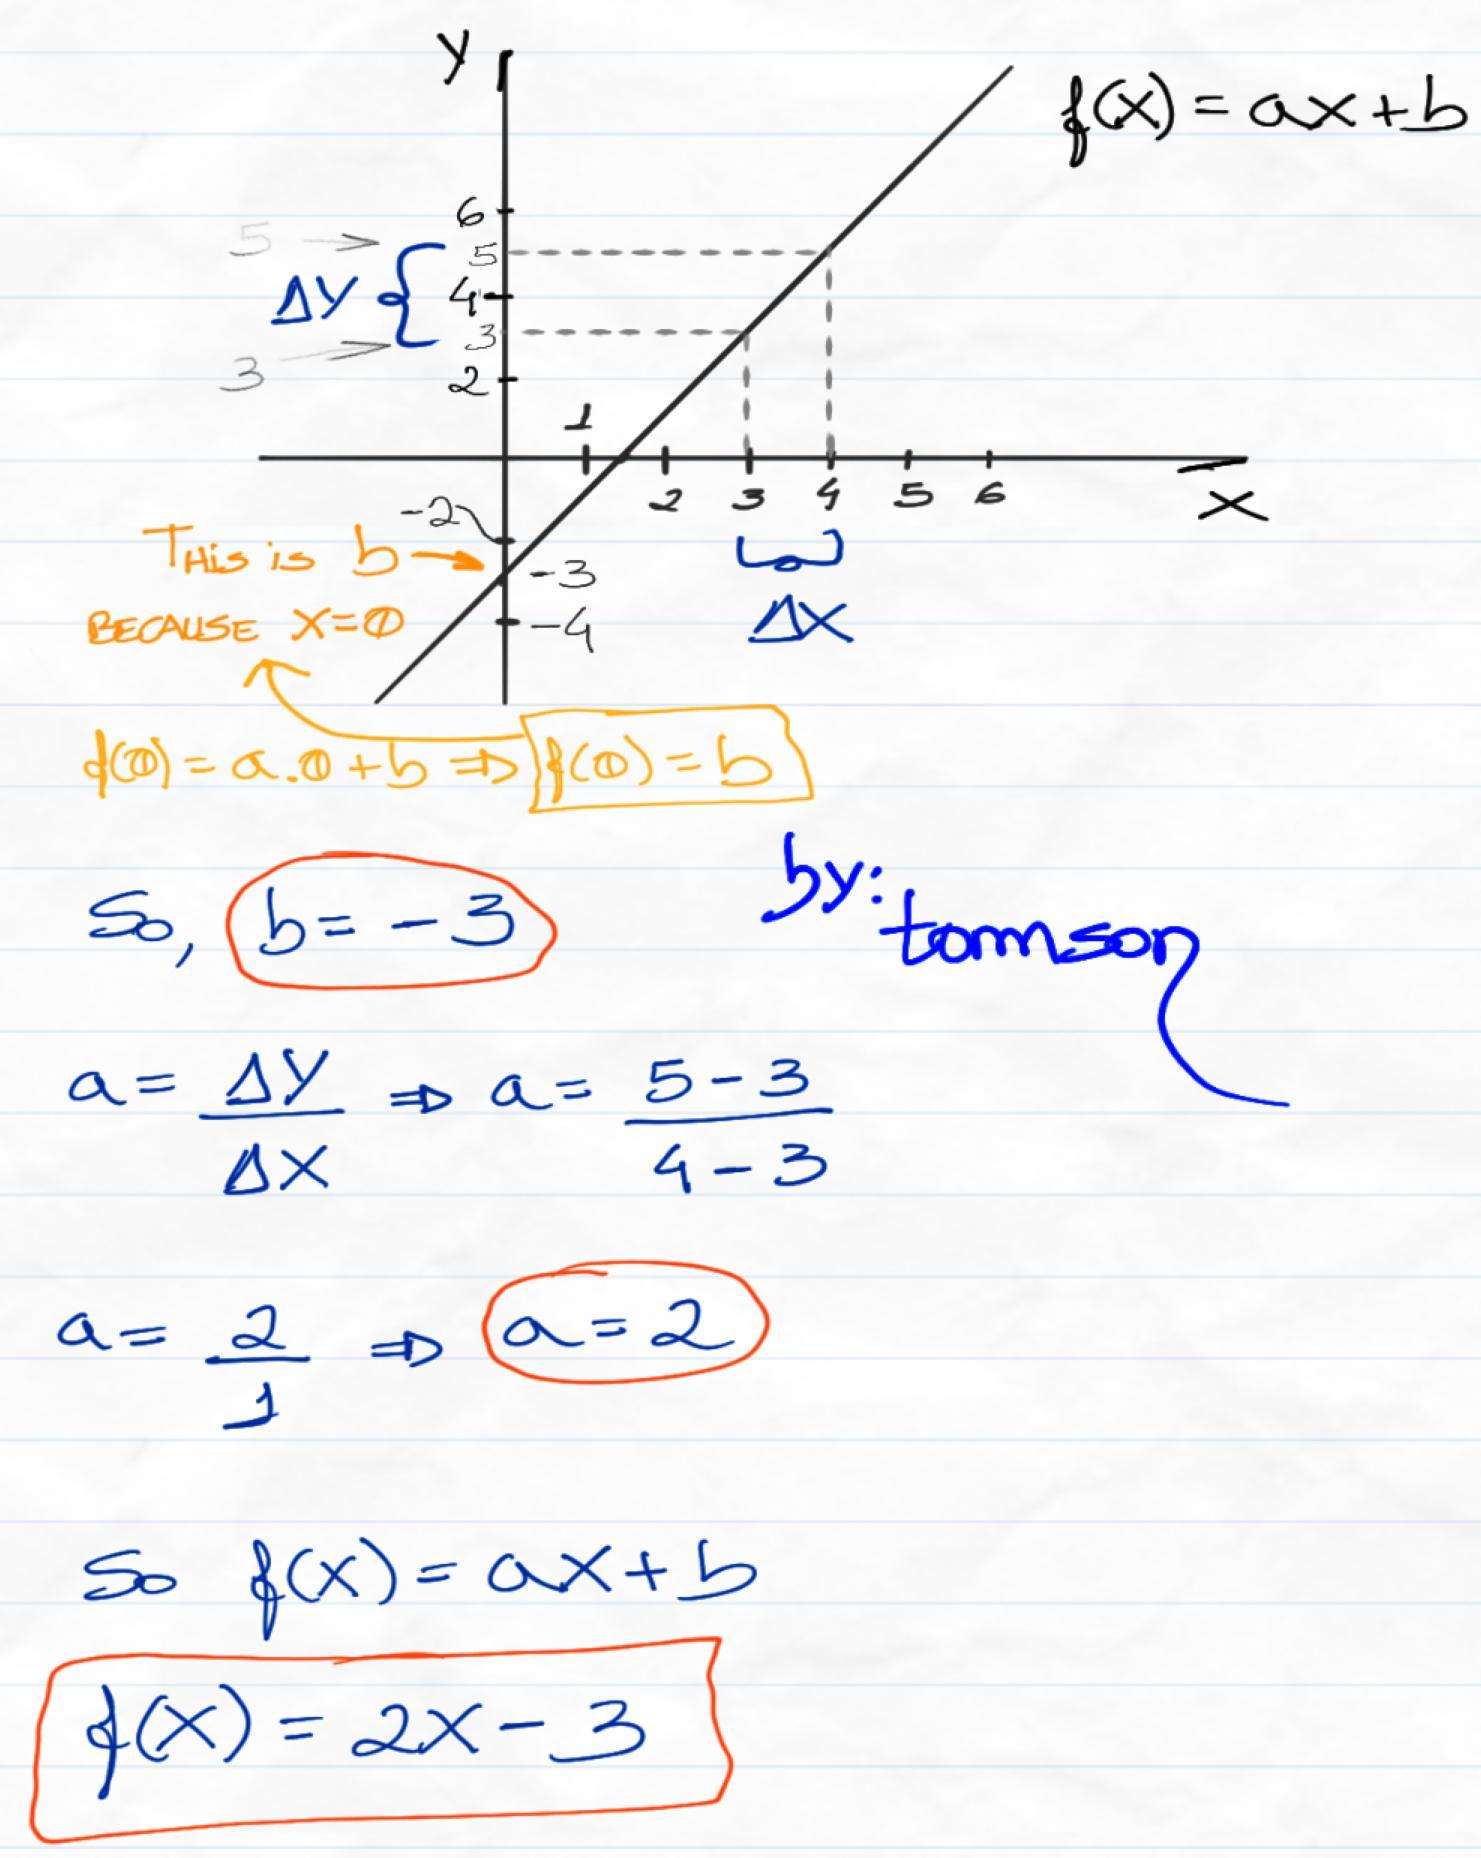 y
f(x) = ax + b
6
5
5
ΔY
4
3
3
2
1
2 3 4 5 6
x
-2
THis is b
-3
BECAUSE X=0
-4
ΔX
f(0) = a.0 + b ⇒ f(0) = b
So, b = -3
by: tomson
a = ΔY/ΔX ⇒ a = 5-3/4-3
a = 2/1 ⇒ a = 2
So f(x) = ax + b
f(x) = 2x - 3